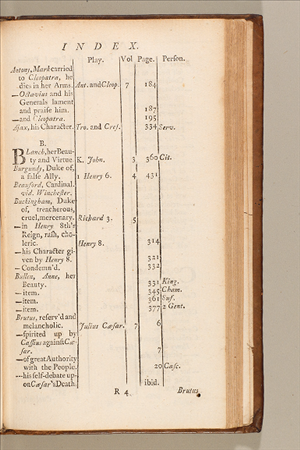 INDEX.
Play. Vol Page. Person.
Antony, Mark carried
to Cleopatra, he
dies in her Arms. Ant. and Cleop. 7 184
—Octavius and his
Generals lament
and praise him. 187
—and Cleopatra. 195
Ajax, his Character. Tro. and Cres. 334 Serv.
B.
BLanch, her Beau-
ty and Virtue K. John. 3 360 Cit.
Burgundy, Duke of,
a false Ally. 1 Henry 6. 4 431
Beauford, Cardinal.
vid. Winchester.
Buckingham, Duke
of, treacherous,
cruel, mercenary. Richard 3. 5
—in Henry 8th's
Reign, rash, cho-
leric. Henry 8. 314
—his Character gi-
ven by Henry 8. 321
—Condemn'd. 332
Bullen, Anne, her
Beauty. 331 King.
—item. 345 Cham.
—item. 361 Suf.
—item. 377 2 Gent.
Brutus, reserv'd and
melancholic. Julius Cæsar. 7 6
—spirited up by
Cassius against Cæ-
sar. 7
—of great Authority
with the People. 20 Casc.
—his self-debate up-
on Cæsar's Death ibid.
R 4 Brutus